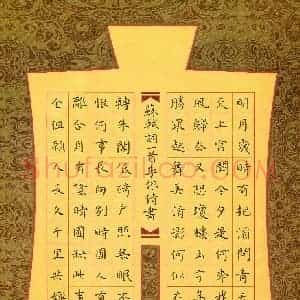 明月幾時有把酒問青天
天上宮闕今夕是何年
風歸去又恐瓊樓玉宇高
勝寒起舞弄清影何似在
蘇軾詞一首
轉朱閣低綺户照無眠不
恨何事長向別時圓人有
離合月有陰晴圓缺此事
全但願人長久千里共嬋